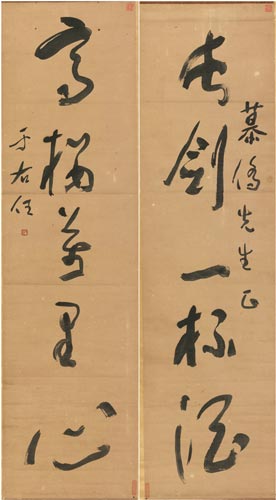 慕侨先生正
长剑一杯酒
高楼万里心
于右任